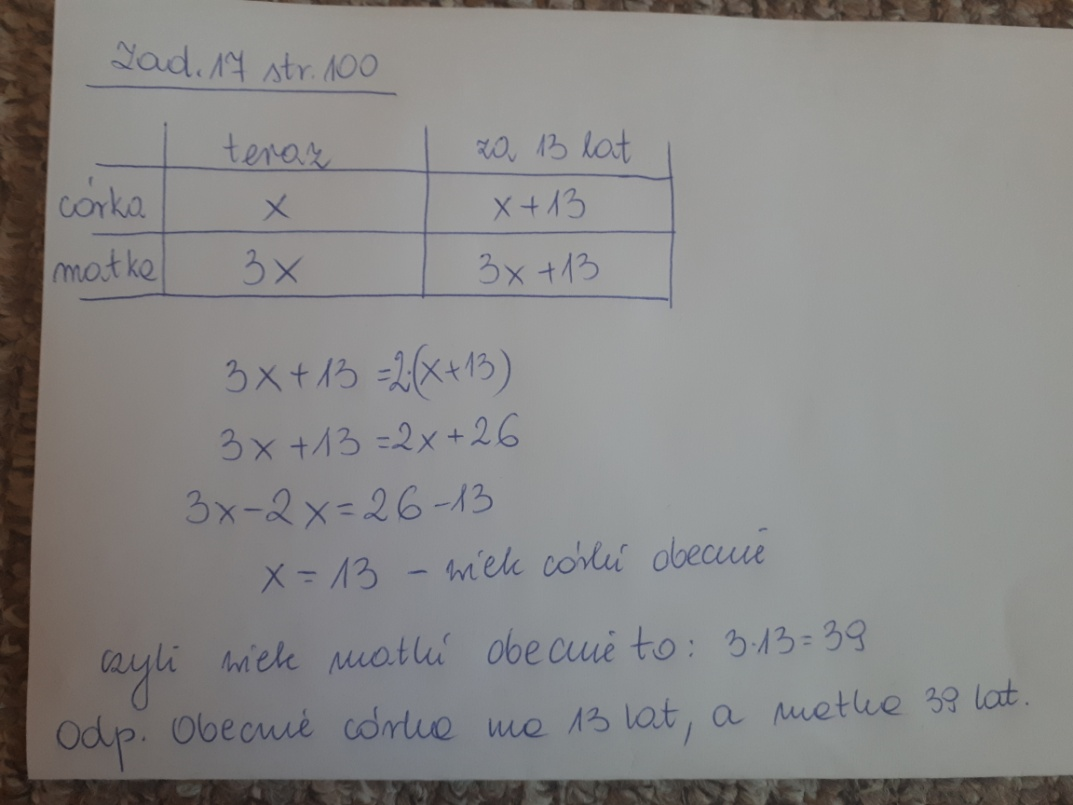 Zad. 17 str. 100
teraz za 13 lat
córka x x+13
matka 3x 3x+13
3x+13=2·(x+13)
3x+13=2x+26
3x-2x=26-13
x=13 - wiek córki obecnie
czyli wiek matki obecnie to: 3·13=39
Odp. Obecnie córka ma 13 lat, a matka 39 lat.